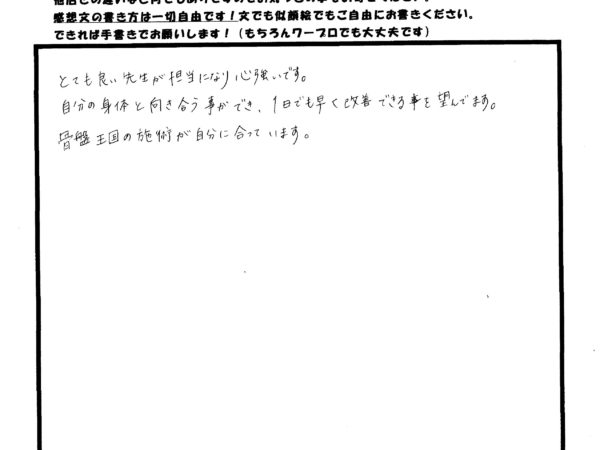 感想文の書き方は一切自由です！文でも似顔絵でもご自由にお書きください。
できれば手書きでお願いします！（もちろんワープロでも大丈夫です）
とても良い先生が担当になり心強いです。
自分の身体と向き合う事ができ、1日でも早く改善できる事を望んでます。
骨盤王国の施術が自分に合っています。